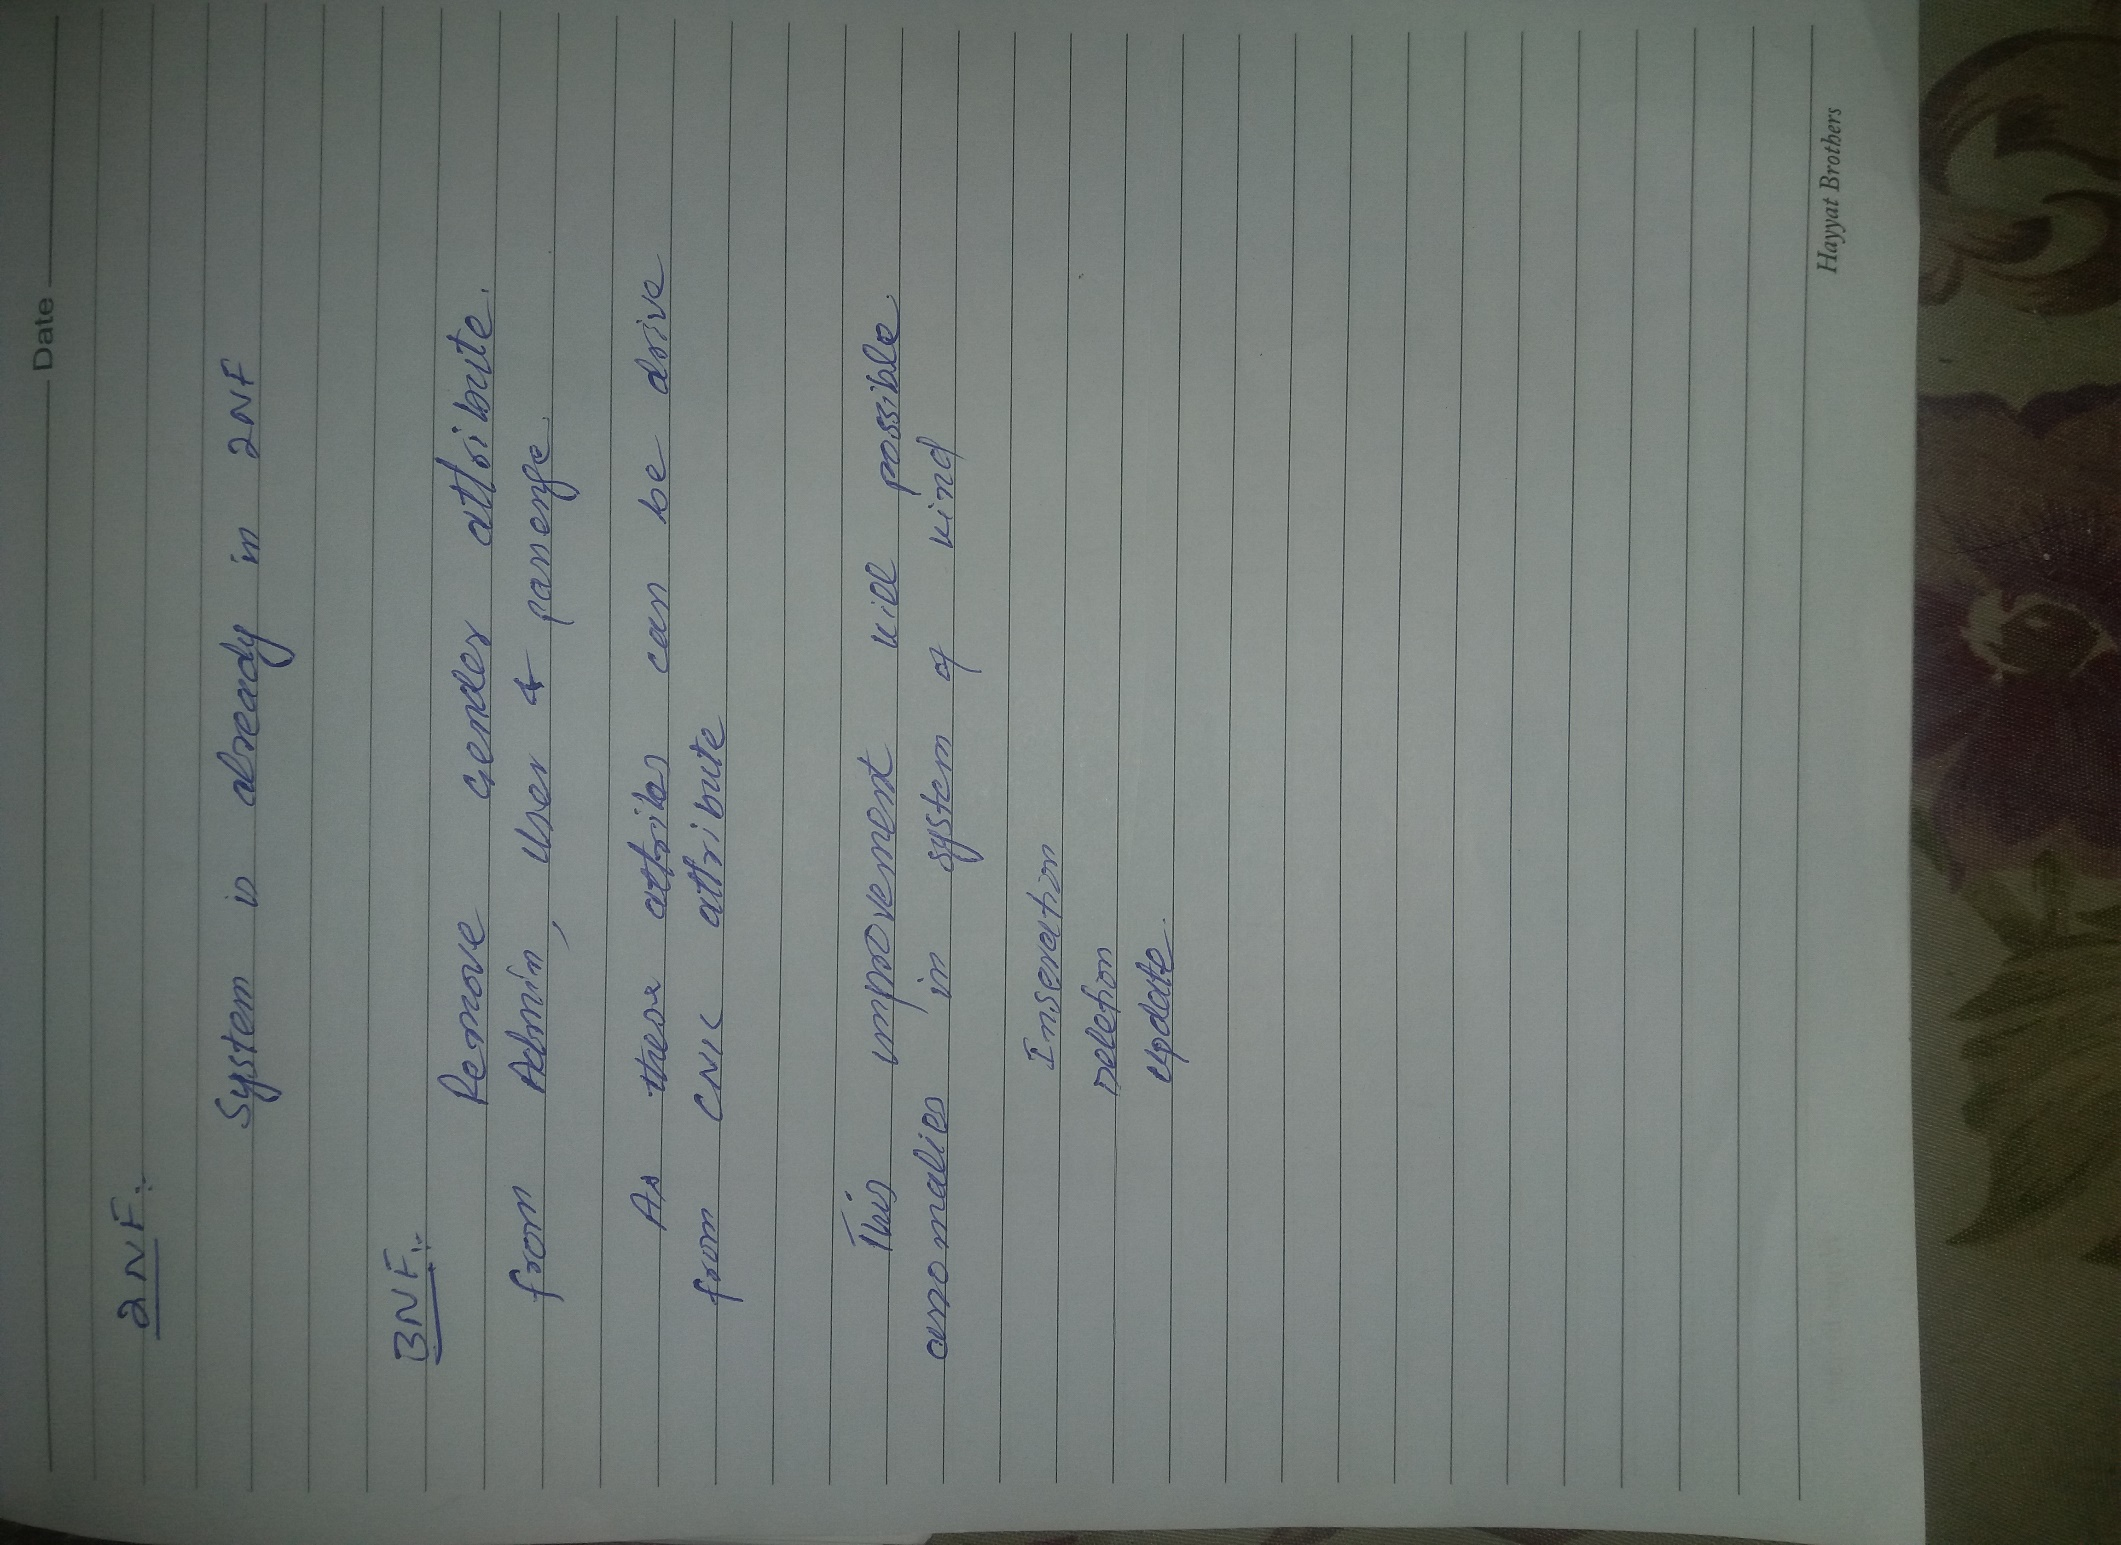 Date
2NF:
System is already in 2NF
3NF:
Remove Gender attribute
from Admin, User & passenge.
As these attribes can be drive
from CNIC attribute
This improvement will possible
anomalies in system of kind
Inseration
Deletion
Update.
Hayyat Brothers